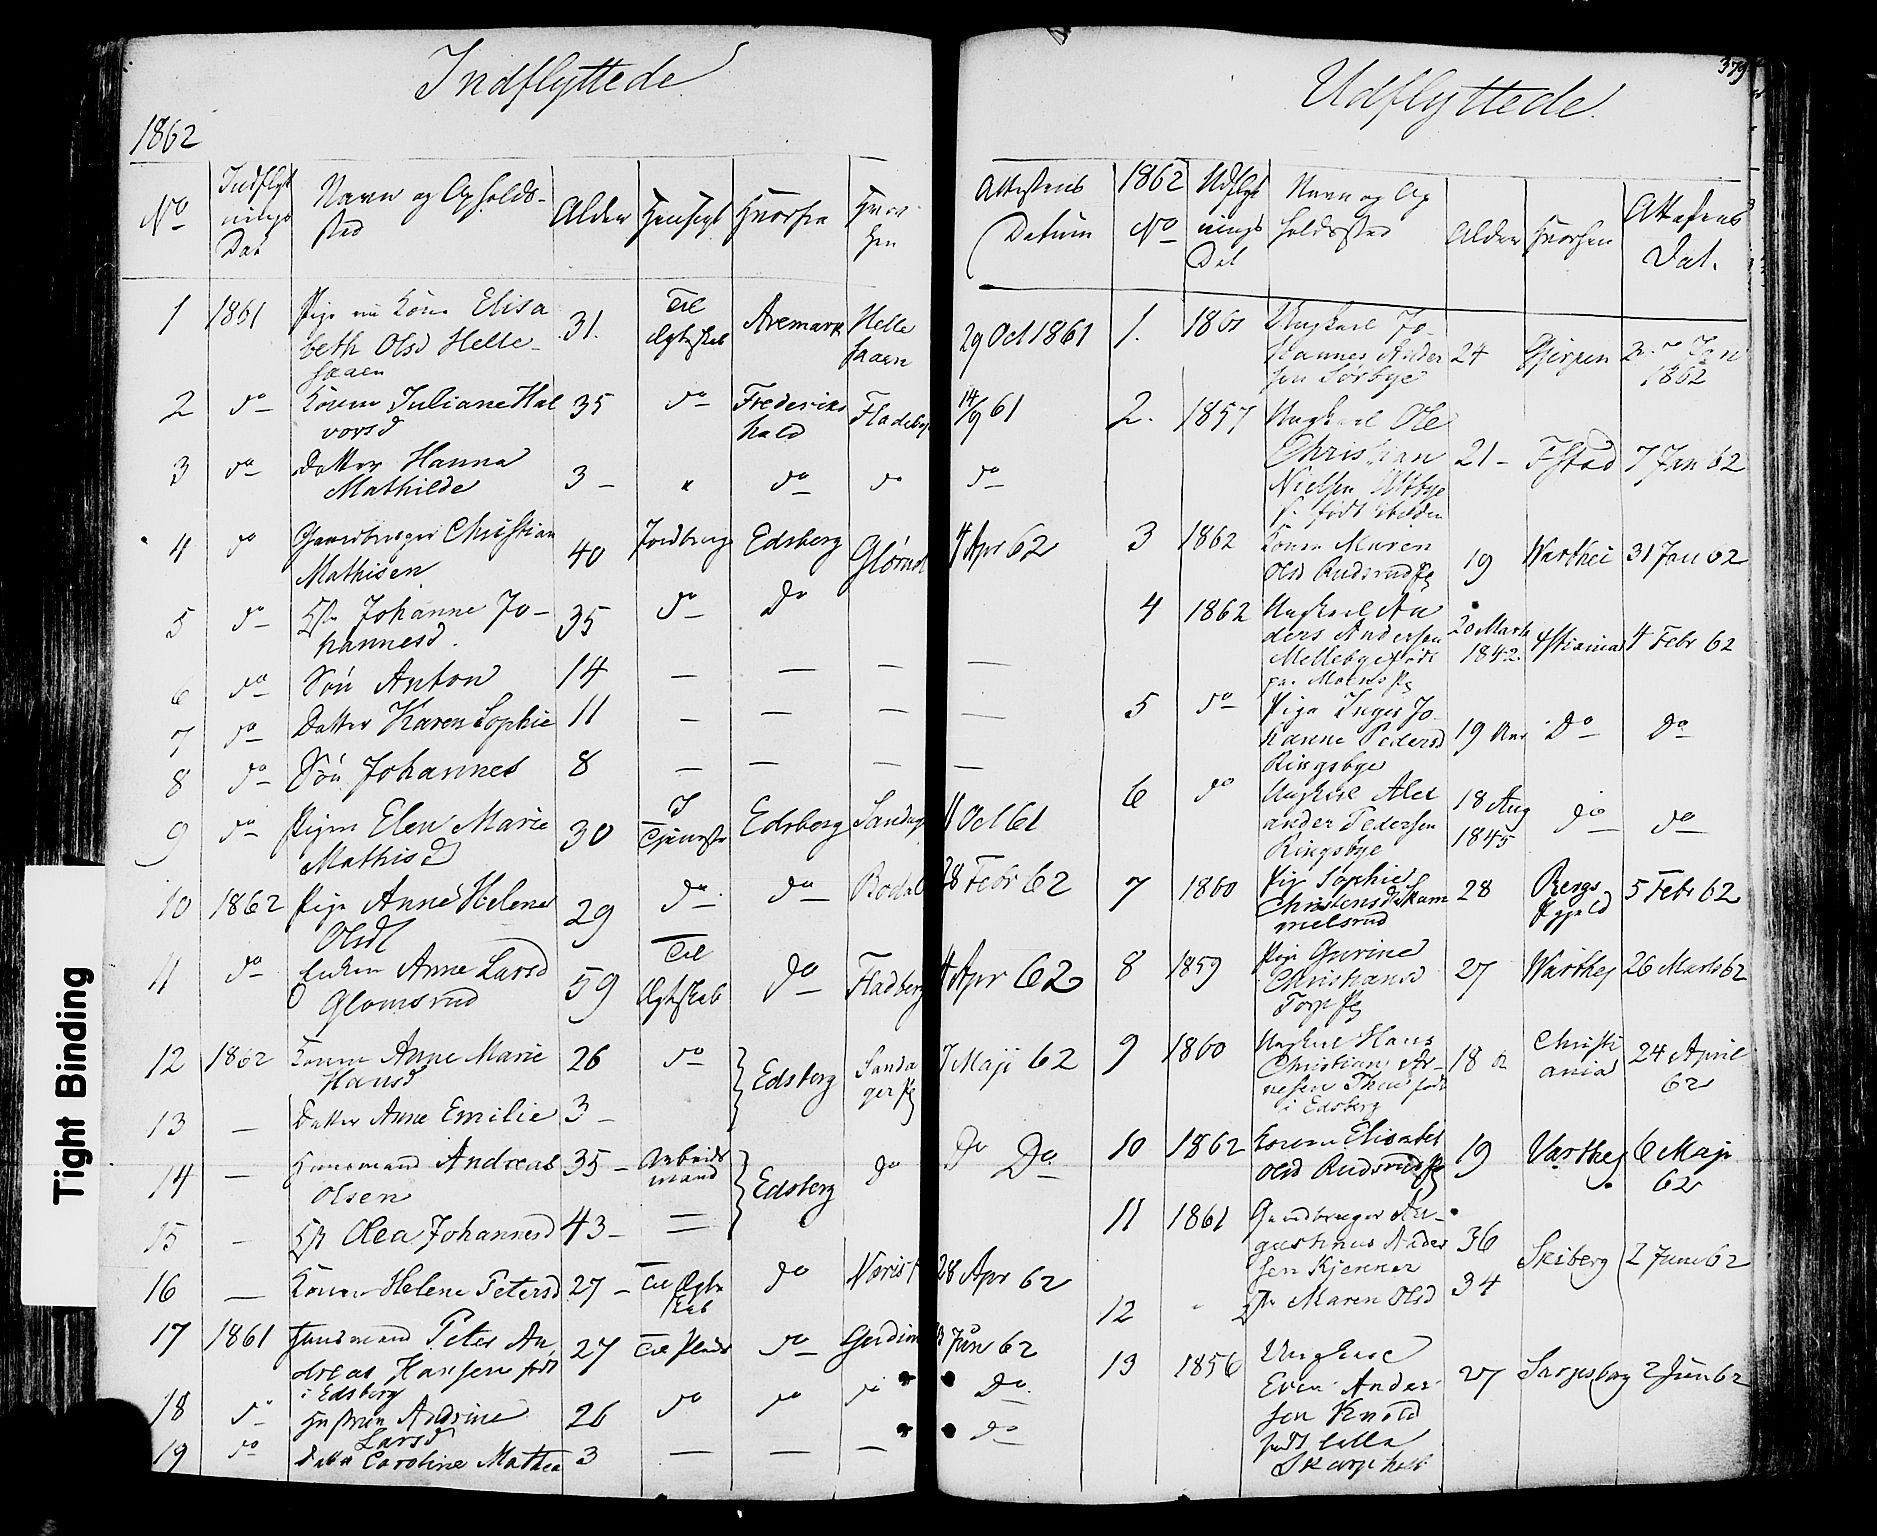 Indflyttede
1862
No
Indflyt
nings
Dat
Navn og Opholds-
sted
Alder
Hensigt
Hvorfra
Hvor-
hen
Attestens
Datum
1 1861 Pige Elisa
beth Olsd Helle-
31. Til
Ægteskab
Aremark Helle
29 Oct 1861
2 do Konen Juliane Hal
vorsd
35 do Frederiks
hald
Fladeby
14/9 61
3 do Datter Hanna
Mathilde
3 - " do do do
4 do Gaardbruger Christian
Mathisen
40 Jordbrug Edsberg 4 Apr 62
5 do Hst. Johanne Jo-
hannesd.
35 do Do
6 do Søn Anton 14 — — — —
7 do Datter Karen Sophie 11 — — — —
8 do Søn Johannes 8 — — — —
9 do Pigen Elen Marie
Mathisd
30 I
Tjeneste
Edsberg 11 Oct 61
10 1862 Pige Anne Helene
Olsd
29 do do 28 Febr 62
11 do Enken Anne Larsd
Glomsrud
59 Til
Ægteskab
do Fladberg 4 Apr 62
12 1862 Konen Anne Marie
Hansd
26 do Edsberg Sanda
ger
7 Maji 62
13 — Datter Anne Emilie 3 -
14 — Huusmand Andreas
Olsen
35 - Arbeids
mand
Edsberg do Do Do
15 — Hst Olea Johannesd 43 -
16 — Konen Helene Petersd 27 - Til Ægte
skab
do 28 Apr 62
17 1861 Huusmand Peter An,
dreas Hansen født
i Edsberg
27 Til Plads do Juni 62
18 do Hustruen Andrine
Larsd
26 do do do Do
19 do Datter Caroline Mathea 3 — — — do
379
Udflyttede.
1862
No
Udflyt
nings
Dat
Navn og Op
holdssted
Alder
Hvorhen
Attestens
Dat.
1. Ungkarl Jo-
hannes Ander
sen Sørbye
24 Gjerpen Jan
1862
2. 1857 Ungkarl Ole
Christian
Nielsen
21 - FStad 7 Jan 62
3 1862 Konen Maren
Olsd Rudsrud
19 Varthei 31 Jan 62
4 1862 Ungkarl An
ders Andersen
Mellebye født
20 Marts
1842.
4 Febr 62
5 do Pige Inger Jo-
hanne Pedersd
Ringsbye
19 Aar Do Do
6 do Ungkarl Alex
ander Pedersen
Ringsbye
18 Aug
1845
do do
7 1860 Pig Sophie
Christensd
28 5 Febr 62
8 1859 Pige Gurine
Christiansd
Torp
27 Varthej 26 Marts 62
9 1860 Ungkarl Hans
Christian Ar-
nesen født
i Edsberg
18 Christi
ania
24 April
62
10 1862 Konen Elisabet
Olsd Rudsrud
19 Varthej 6 Maji
62
11 1861 Gaardbruger Au-
gustinus Ander
sen Kjenner
36 Skiberg 2 Juni 62
12 " Maren Olsd 34
13 1856 Ungkarl
Even Ander-
sen Knold
født Lille
27 Sarpsborg 2 Juni 62
Tight Binding